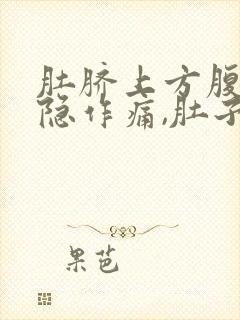 肚脐上方腹
隐作痛,肚子
果芭